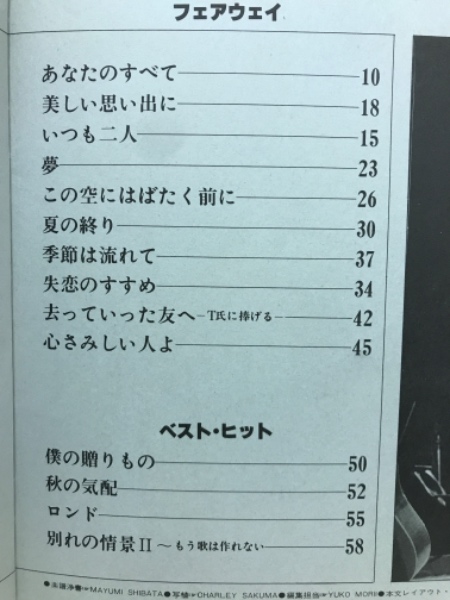 フェアウェイ
あなたのすべて 10
美しい思い出に 18
いつも二人 15
夢 23
この空にはばたく前に 26
夏の終り 30
季節は流れて 37
失恋のすすめ 34
去っていった友へ-T氏に捧げる- 42
心さみしい人よ 45
ベスト・ヒット
僕の贈りもの 50
秋の気配 52
ロンド 55
別れの情景II 〜もう歌は作れない 58
●楽譜浄書☞MAYUMI SHIBATA●写植☞CHARLEY SAKUMA●編集担当☞YUKO MORII●本文レイアウト・